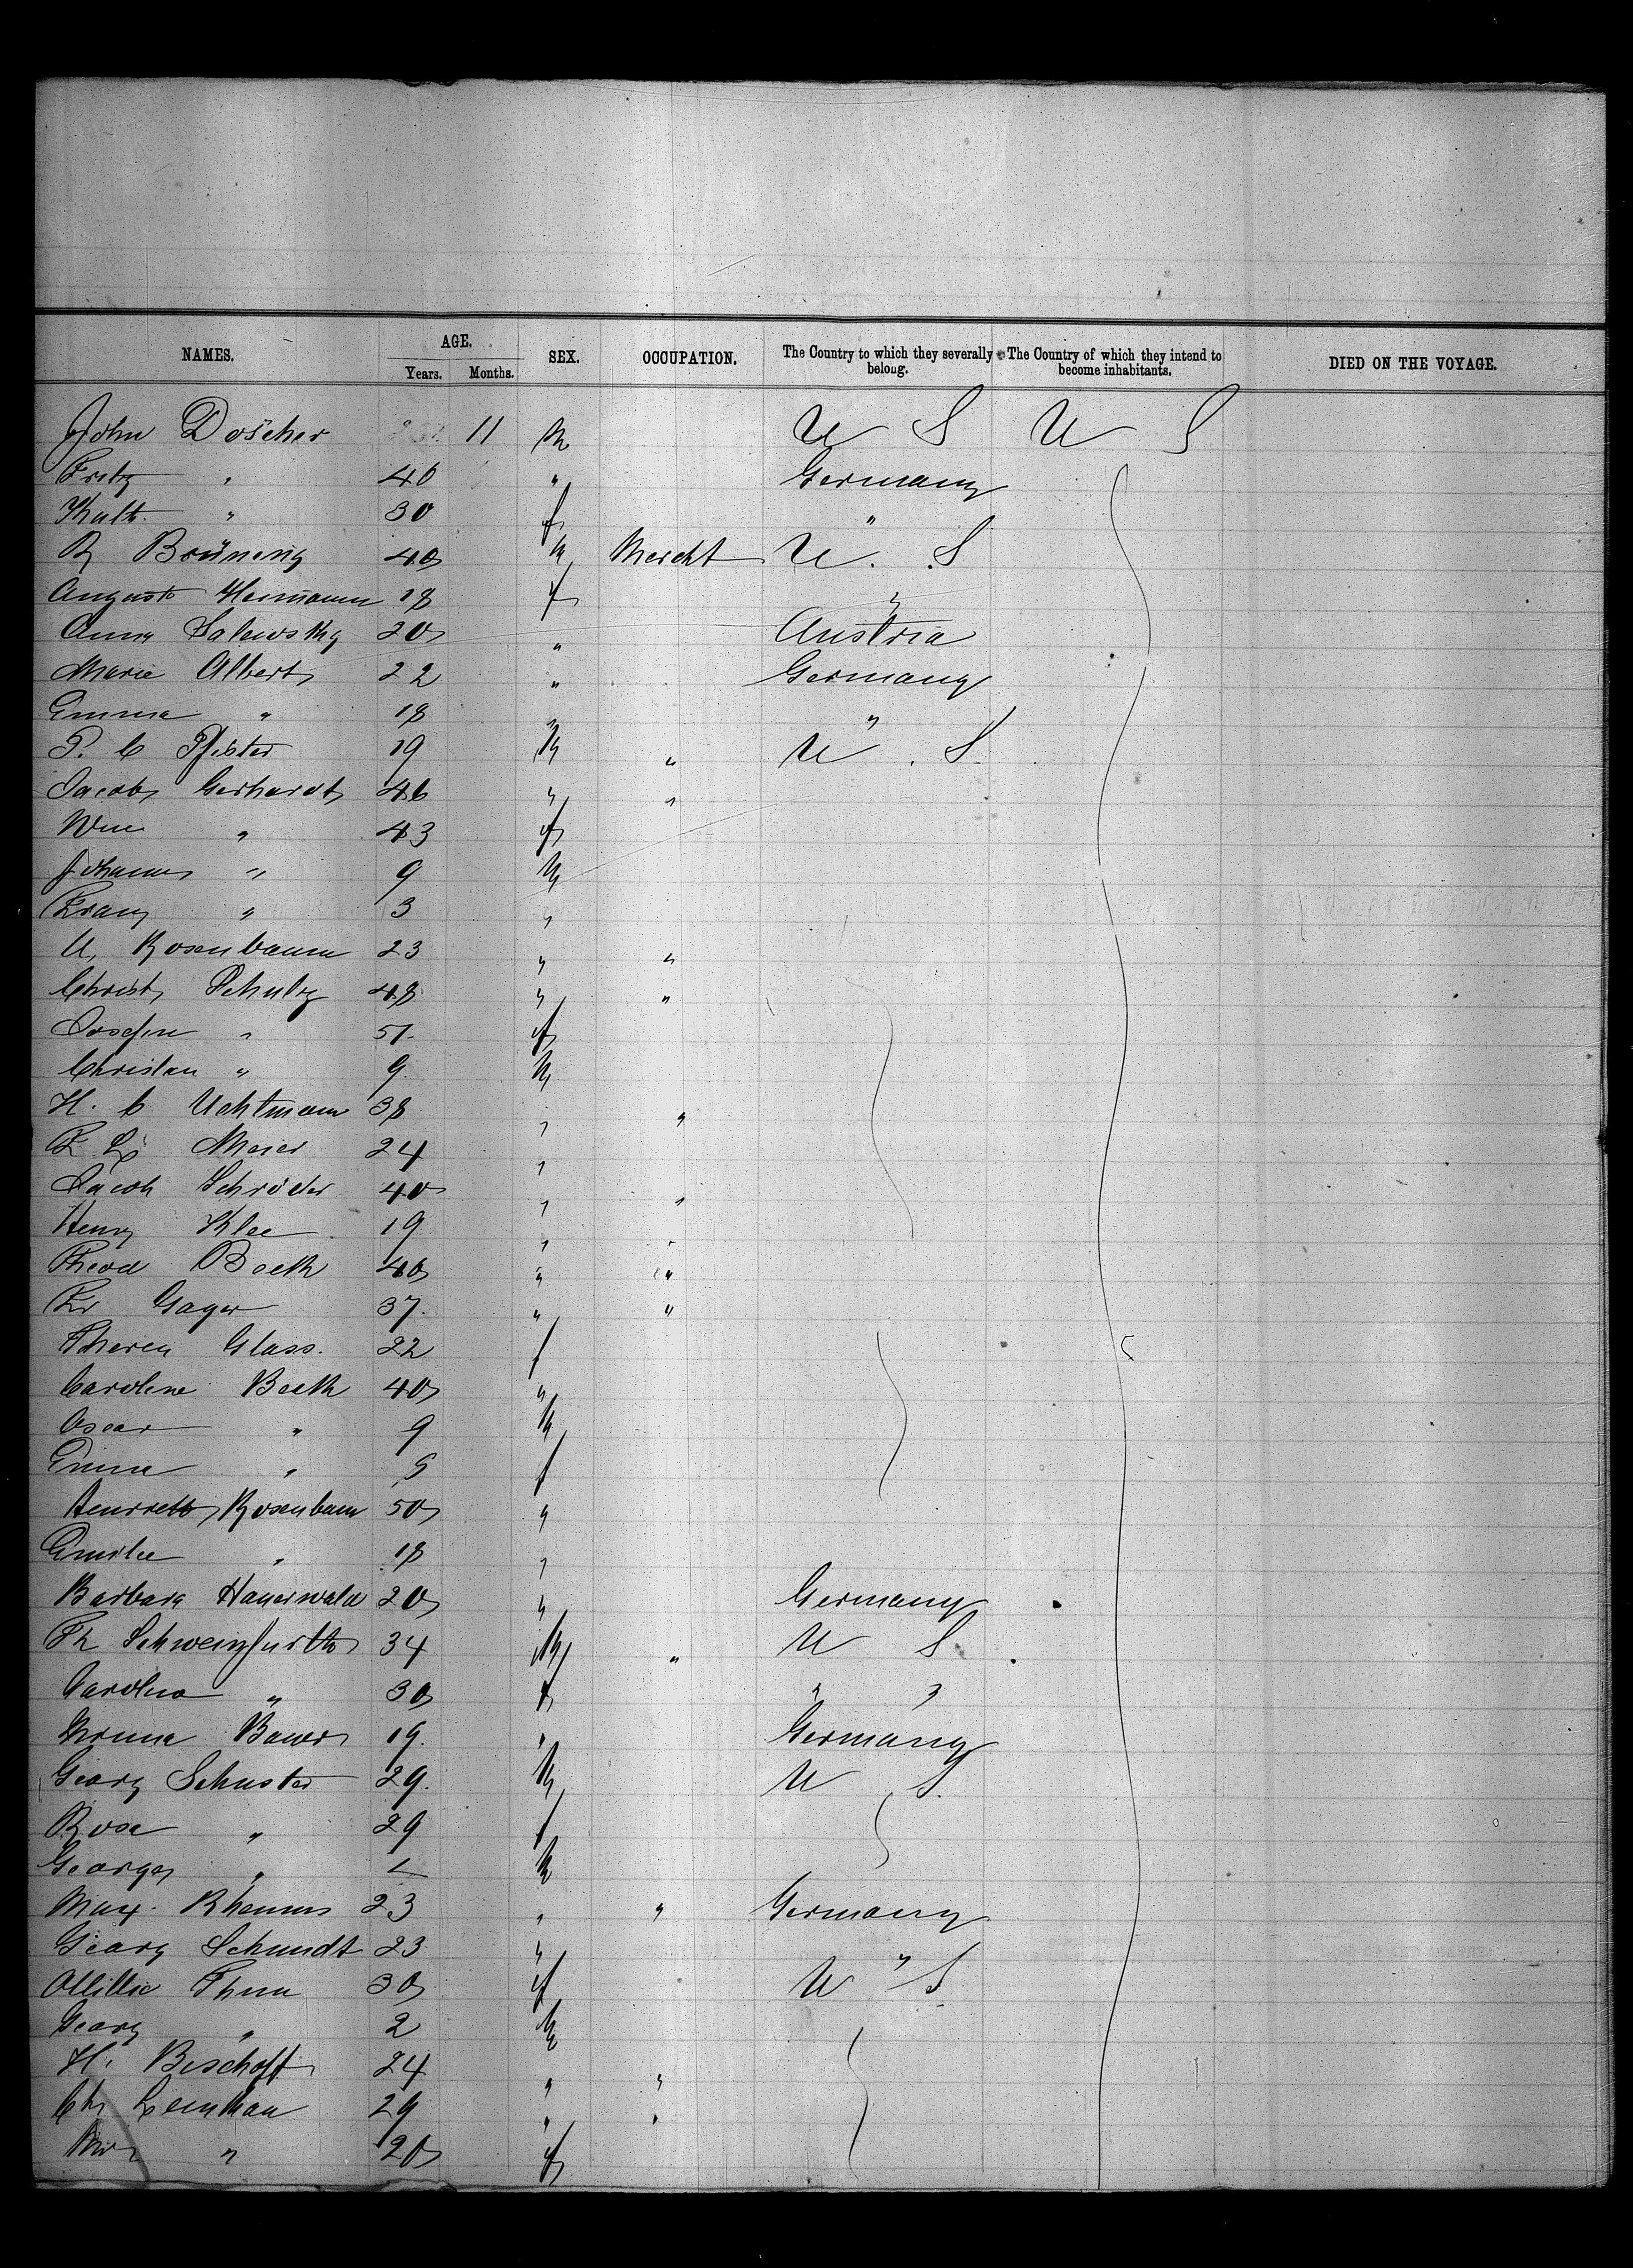 NAMES. AGE. SEX. OCCUPATION. The Country to which they severally belong. The Country of which they intend to become inhabitants. DIED ON THE VOYAGE.
Years. Months.
John Döscher 11 M U S U S
Fritz " 40 " Germany
Kath. " 30 f "
R Brüning 40 M Mercht U. S
Auguste Hermann 18 f "
Anna Salewsky 20 " Austria
Marie Albert 22 " Germany
Emma " 18 " "
P. C Pfister 19 M " U. S.
Jacob Gerhardt 46 " "
Wm " 43 f
Johannes " 9 M
Franz " 3 "
U. Rosenbaum 23 " "
Christ Schulz 48 " "
Josefine " 51 f
Christian " 9 M
H. C Uchtmann 38 " "
F Meier 24 "
Jacob Schröder 40 " "
Henry Klee 19 " "
Theod Beck 40 " "
Fr Gager 37 " "
Theresa Glass. 22 f
Caroline Beck 40 "
Oscar " 9 M
Emma " 5 f
Henriette Rosenbaum 50 "
Emilie " 18 "
Barbara Hauerwald 20 " Germany
Fr Schweinfurth 34 M " U S
Carolina " 30 f " "
Bauer 19. " Germany
Georg Schuster 29. M U S.
Rosa " 29 f
Georges " 1 M
Max. Rhenius 23 " " Germany
Georg Schmidt 23 " "
Ottillie Thum 30 f U S
Georg " 2 M
H. Bischoff 24 " "
Ch Leinhau 29 " "
" 20 f